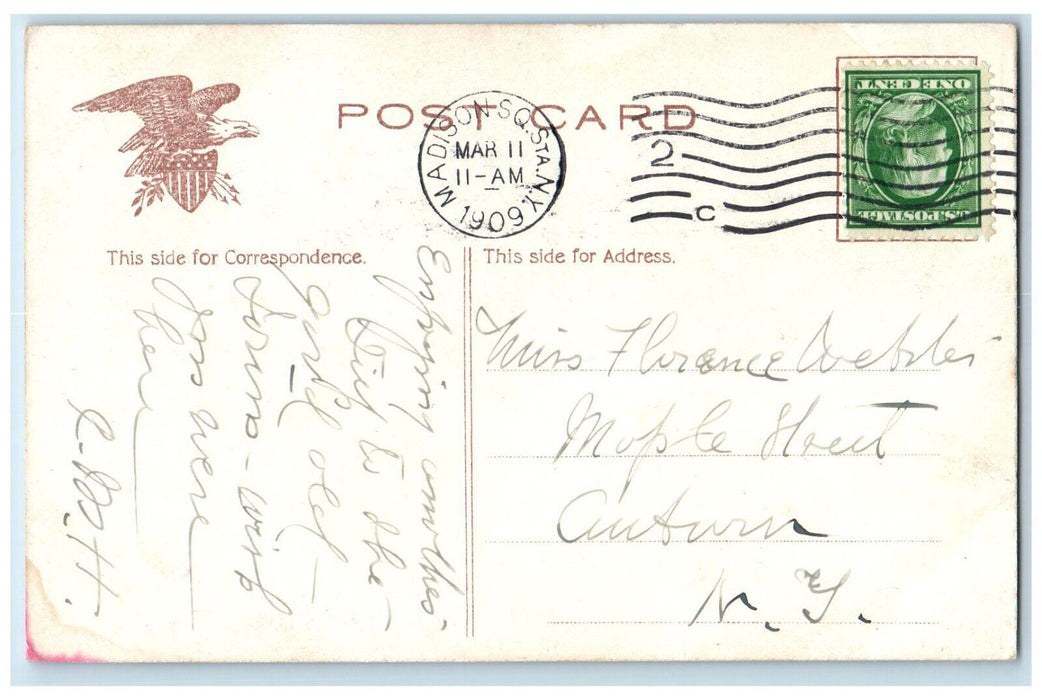 POST CARD
MADISON SQ. STA. N.Y.
MAR 11
11-AM
1909
2
C
U.S. POSTAGE
ONE CENT
This side for Correspondence.
This side for Address.
Enjoying another
day in the
good old
town - wish
you were
here
Miss Florence Webster
Maple Street
Auburn
N.Y.